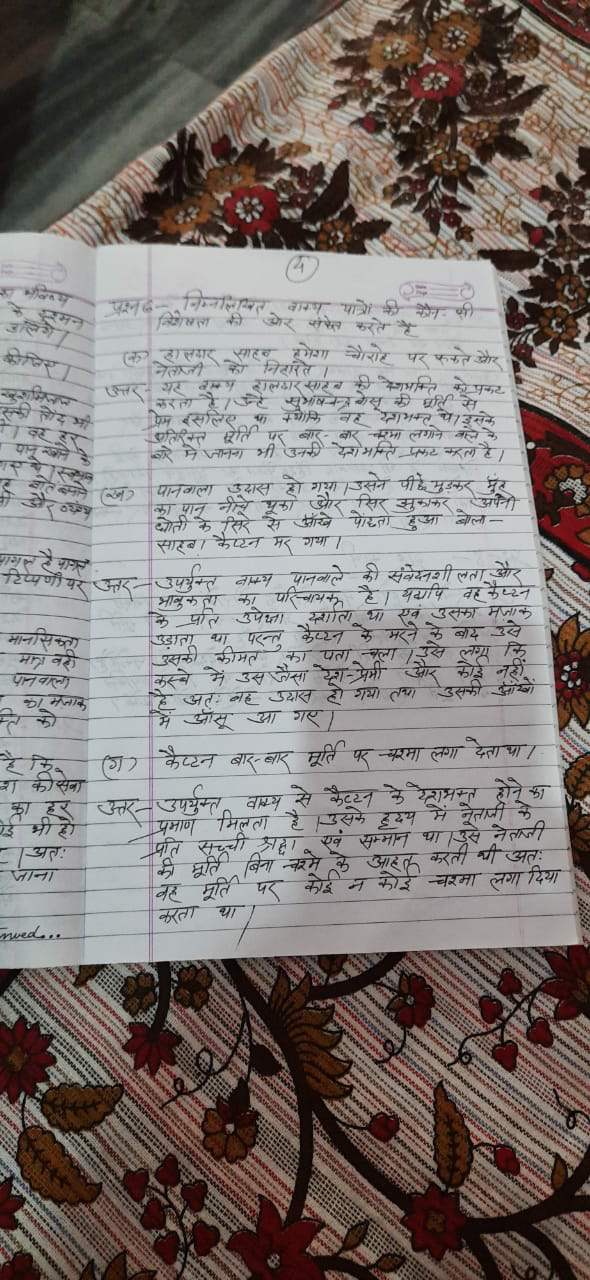 4
प्रश्न6- निम्नलिखित वाक्य पात्रों की कौन-सी
विशेषता की ओर संकेत करते है
(क) हालदार साहब हमेशा चौराहे पर रूकते और
नेताजी को निहारते।
उत्तर- यह वाक्य हालदार साहब की देशभक्ति को प्रकट
करता है। उन्हें सुभाषचन्द्र बोस की मूर्ति से
प्रेम इसलिए था क्योंकि वह देशभक्त थे। इसके
अतिरिक्त मूर्ति पर बार-बार चश्मा लगाने वाले के
बारे में जानना भी उनकी देशभक्ति प्रकट करता है।
(ख) पानवाला उदास हो गया। उसने पीछे मुड़कर मुंह
का पान नीचे थूका और सिर झुकाकर अपनी
धोती के सिरे से आँखे पोंछता हुआ बोला-
साहब! कैप्टन मर गया।
उत्तर- उपर्युक्त वाक्य पानवाले की संवेदनशीलता और
भावुकता का परिचायक है। यद्यपि वह कैप्टन
के प्रति उपेक्षा दर्शाता था एवं उसका मजाक
उड़ाता था परन्तु कैप्टन के मरने के बाद उसे
उसकी कीमत का पता चला। उसे लगा कि
कस्बे में उस जैसा देश-प्रेमी और कोई नहीं
है अतः वह उदास हो गया तथा उसकी आंखों
में आँसू आ गए।
(ग) कैप्टन बार-बार मूर्ति पर चश्मा लगा देता था।
उत्तर- उपर्युक्त वाक्य से कैप्टन के देशभक्त होने का
प्रमाण मिलता है। उसके हृदय में नेताजी के
प्रति सच्ची श्रद्धा एवं सम्मान था। उसे नेताजी
की मूर्ति बिना चश्मे के आहत करती थी अतः
वह मूर्ति पर कोई न कोई चश्मा लगा दिया
करता था।